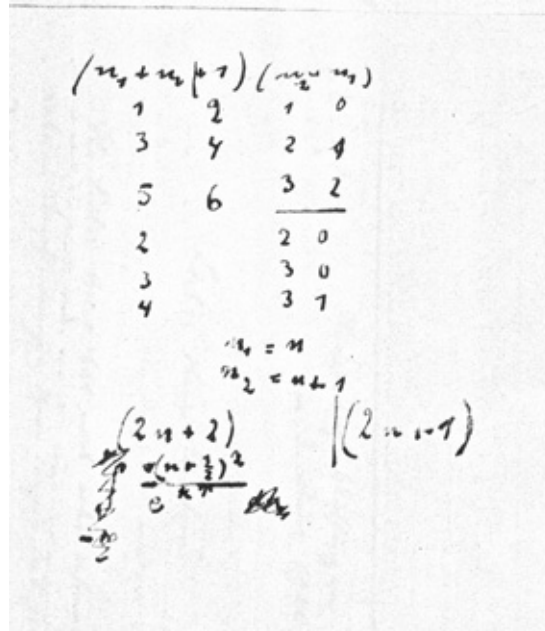 (n₁ + n₂ + 1) (n₂ - n₁)
1 2 1 0
3 4 2 1
5 6 3 2
2 2 0
3 3 0
4 3 1
n₁ = n
n₂ = n + 1
(2n + 2) |(2n + 1)